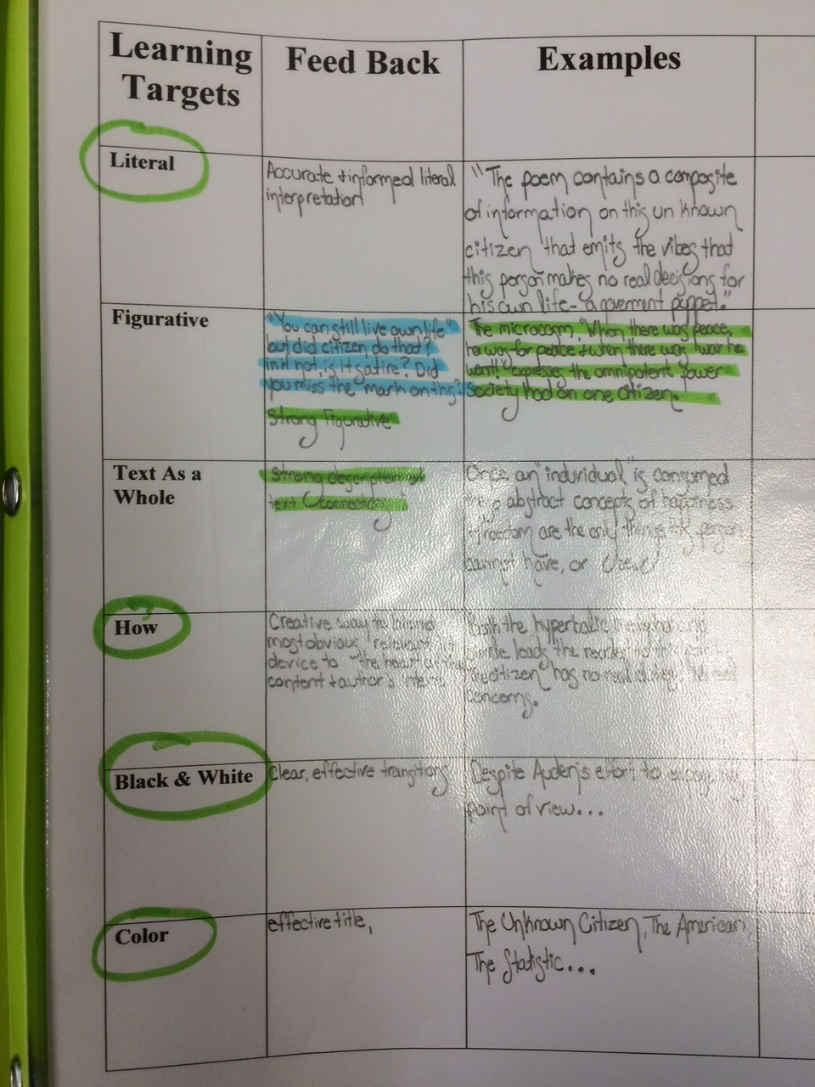 Learning
Targets
Feed Back
Examples
Literal
Accurate + informed literal
interpretation
"The poem contains a composite
of information on this un known
citizen that emits the vibes that
this person makes no real decisions for
his own life - a government puppet."
Figurative
"You can still live own life"
but did citizen do that?
is it satire? Did
you miss the "mark on this?
Strong Figurative
The microcosm, "When there was peace,
he was for peace + when there was war he
went!" expresses the omnipotent power
Society had on one citizen.
Text As a
Whole
Strong description of
text connection
Once an "individual" is consumed
abstract concepts of happiness
+ freedom are the only things person
cannot have, or
How
Creative way to
most obvious
device to "the heart of the
content + author's
Both the hyperbolic
leads the reader to
"citizen" has no real
concerns.
Black & White
Clear, effective transitions
Despite Auden's effort to
point of view...
Color
effective title,
The Unknown Citizen, The American,
The Statistic...